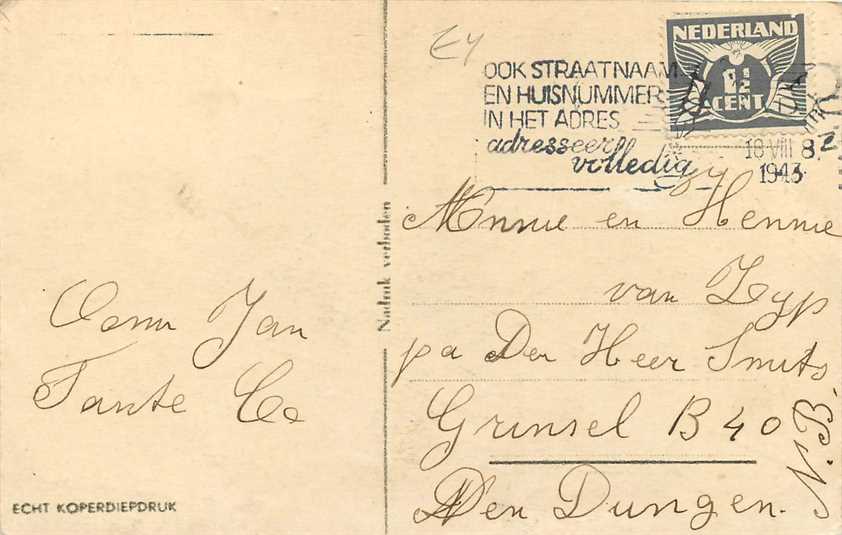 NEDERLAND
1½
CENT
OOK STRAATNAAM
EN HUISNUMMER
IN HET ADRES
adresseer
volledig
18 VIII 8
1943
Annie en Hennie
van Zyp
pa Den Heer Smits
Grinsel B 40
Den Dungen.
N.B.
Oom Jan
Tante Co
Nadruk verboden
ECHT KOPERDIEPDRUK